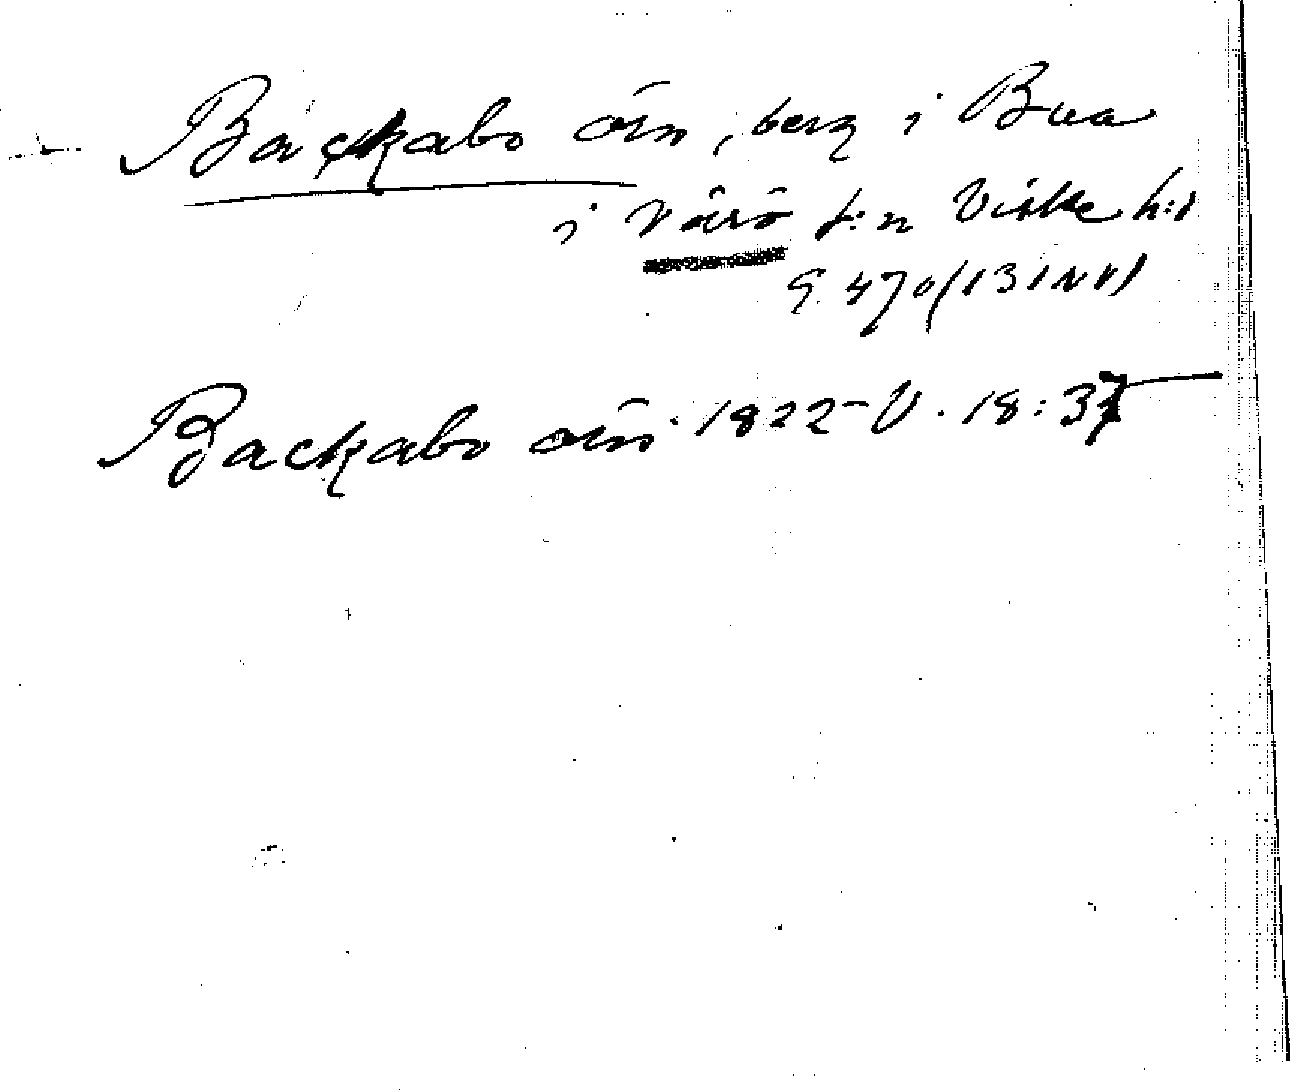 Backabo örn, berg i Bua
i Värö s:n Viske h:d
G. 470/131NV)
Backabo örn 1822 V. 18:37